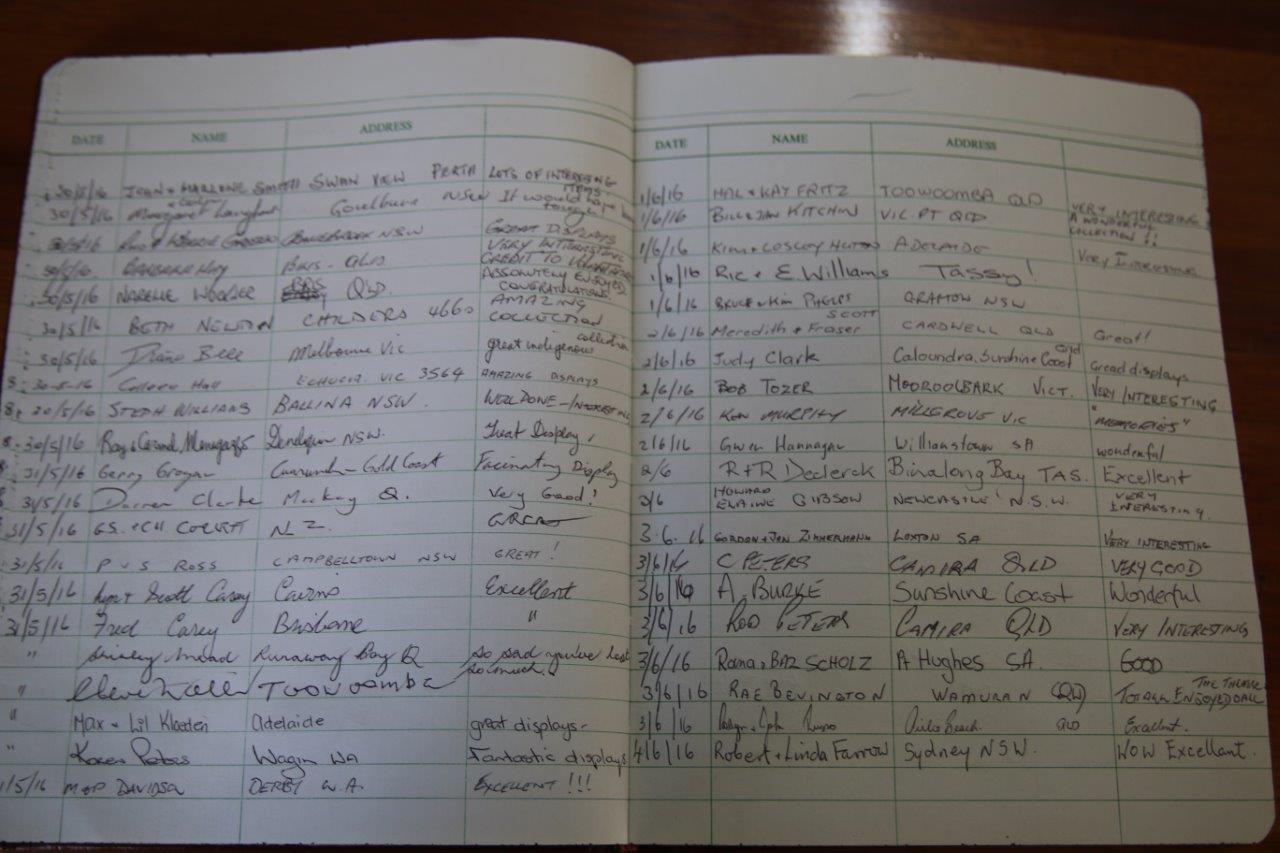 DATE NAME ADDRESS
30/5/16 JOHN + MARLENE SMITH SWAN VIEW PERTH LOTS OF INTERESTING ITEMS
30/5/16 Margaret Goulburn NSW It would
30/5/16 NSW GREAT DISPLAYS
30/5/16 BARBARA BRIS - QLD VERY INTERESTING CREDIT TO
30/5/16 NARELLE QLD. ABSOLUTELY ENJOYED CONGRATULATIONS.
30/5/16 BETH NEWTON CHILDERS 4660 AMAZING COLLECTION
30/5/16 Diane Bell Melbourne Vic great indigenous collection
30-5-16 Colleen Hall ECHUCA. VIC 3564 AMAZING DISPLAYS
30/5/16 STEPH WILLIAMS BALLINA NSW. WELL DONE - INTERESTING
30/5/16 NSW. Great Display,
31/5/16 Gerry Grogan Currumbin Gold Coast Facinating Display
31/5/16 Darren Clarke Mackay Q. Very Good!
31/5/16 N Z. GREAT
31/5/16 P V S ROSS CAMPBELLTOWN NSW GREAT!
31/5/16 Scott Casey Cairns Excellent
31/5/16 Fred Casey Brisbane "
" Runaway Bay Q so sad you've lost so much.
" TOOWOOMBA
" Max + Lil Adelaide great displays -
" Karen Wagin WA Fantastic displays
1/5/16 M+P DAVIDSON DERBY W.A. EXCELLENT !!!
DATE NAME ADDRESS
1/6/16 MAL + KAY FRITZ TOOWOOMBA QLD
1/6/16 BILL & JAN KITCHIN VIC. PT QLD VERY INTERESTING A WONDERFUL COLLECTION !!
1/6/16 Kim + Lesley ADELAIDE VERY INTERESTING
1/6/16 Ric + E. Williams Tassy!
1/6/16 BRUCE + Kim PHELPS GRAFTON NSW
2/6/16 Meredith + Fraser SCOTT CARDWELL QLD Great!
2/6/16 Judy Clark Caloundra, Sunshine Coast Qld Gread displays
2/6/16 BOB TOZER MOOROOLBARK VICT. VERY INTERESTING
2/6/16 KEN MURPHY MILLGROVE VIC "MEMORIES"
2/6/16 Gwen Hannagan Williamstown SA wonderful
2/6 R+R Declerck Binalong Bay TAS. Excellent
2/6 HOWARD ELAINE GIBSON NEWCASTLE N.S.W. VERY INTERESTING.
3.6.16 GORDON + JAN ZIMMERMANN LOXTON SA VERY INTERESTING
3/6/16 C PETERS CAMIRA QLD VERY GOOD
3/6/16 A. BURKE Sunshine Coast Wonderful
3/6/16 ROD PETERS CAMIRA QLD VERY INTERESTING
3/6/16 Rana + BAZ SCHOLZ A Hughes SA. GOOD
3/6/16 RAE BEVINGTON WAMURAN QLD TOTALLY ENJOYED ALL THE THEATRE
3/6/16 Beach. QLD Excellent.
4/6/16 Robert + Linda Farrow Sydney NSW. WOW Excellent.